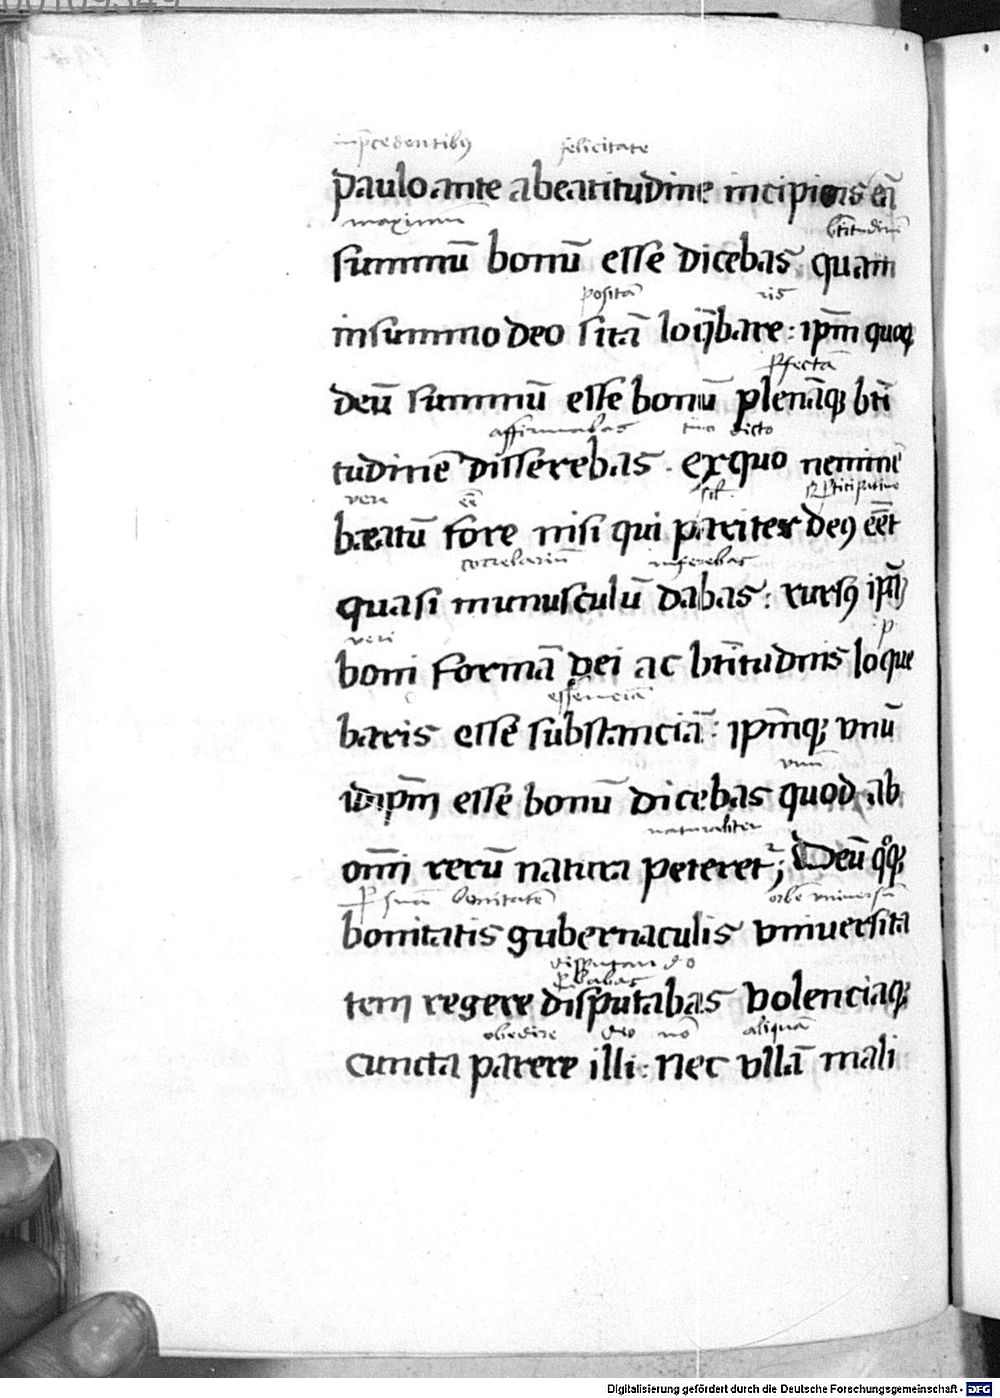 00109349
inp̄cedentibꝰ felicitate
paulo ante abeatitudine incipiens eā
maximum btītudinē
summū bonū esse dicebas quam
positā ris
insummo deo sitā loq̄bare : ip̄m quoqꝫ
ꝑfectā
deū summū esse bonū plenāqꝫ btī
affirmabas tuo dicto
tudinē disserebas . exquo neminē
vere ēē scꝫ
beatū fore nisi qui pariter deꝰ eēt
correlariū inferebas
quasi munusculū dabas : rursꝰ ip̄m
veri
boni formā dei ac btītudinis loque
essenciā
baris esse substanciā : ip̄mqꝫ vnū
vnū
idip̄m esse bonū dicebas quod ab
naturaliter
om̄i rerū natura peteretᷣ ; Deū qͦqꝫ
ꝑ suā bonitatē orbē vniuersū
bonitatis gubernaculis vniuersita
disputando
ꝓbabas
tem regere disputabas volenciaqꝫ
obedire deo nō aliquā
cuncta parere illi : nec vllā mali
Digitalisierung gefördert durch die Deutsche Forschungsgemeinschaft - DFG